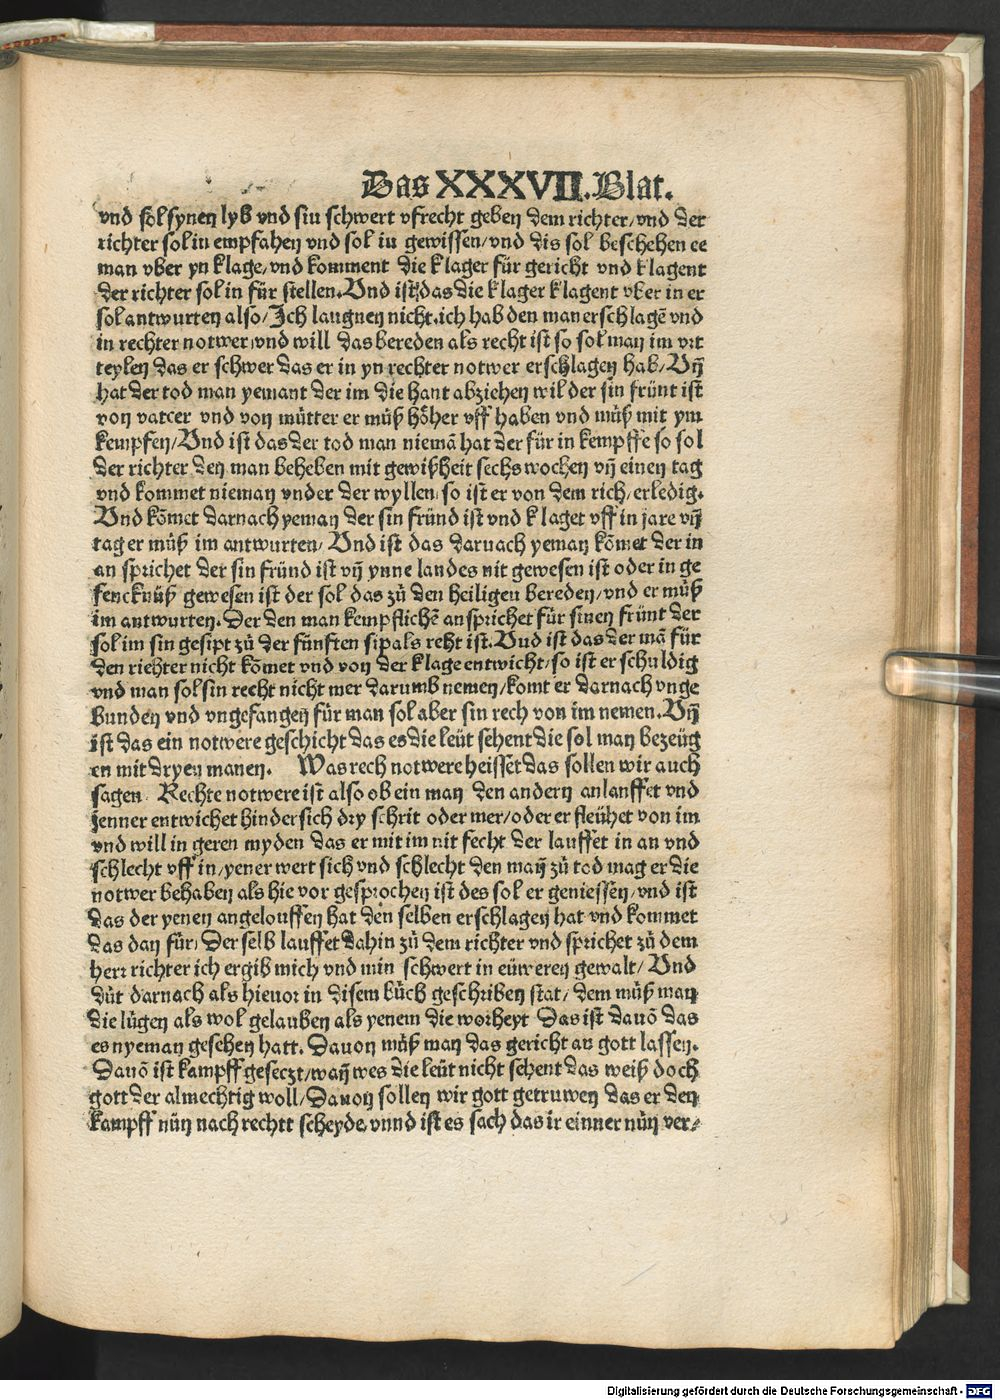 Das XXXVII. Blat.
vnd sol synen lyb vnd sin schwert vfrecht geben dem richter/vnd der
richter sol in empfahen vnd sol in gewissen/vnd dis sol beschehen ee
man vber yn klage/vnd komment die klager für gericht vnd klagent
der richter sol in für stellen. Vnd ist das die klager klagent vber in er
sol antwurten also/Ich laugnen nicht.ich hab den man erschlagē vnd
in rechter notwer/vnd will das bereden als recht ist so sol man im vrt
teylen das er schwer das er in yn rechter notwer erschlagen hab/Vn̄
hat der tod man yemant der im die hant abziehen wil der sin frünt ist
von vatter vnd von mütter er müß höher vff haben vnd müß mit ym
kempfen/Vnd ist das der tod man niemā hat der für in kempffe so sol
der richter den man beheben mit gewißheit sechs wochen vn̄ einen tag
vnd kommet nieman vnder der wyllen/so ist er von dem rich/erledig.
Vnd kōmet darnach yeman der sin fründ ist vnd klaget vff in jare vn̄
tag er müß im antwurten/Vnd ist das darnach yeman kōmet der in
an sprichet der sin fründ ist vn̄ ynne landes nit gewesen ist oder in ge
fencknüß gewesen ist der sol das zů den heiligen bereden/vnd er müß
im antwurten. Der den man kempflichē ansprichet für sinen frünt der
sol im sin gesipt zů der fünften sip als reht ist. Vnd ist das der mā für
den riehter nicht kōmet vnd von der klage entwicht/so ist er schuldig
vnd man sol sin recht nicht mer darumb nemen/komt er darnach vnge
bunden vnd vngefangen für man sol aber sin rech von im nemen. Vn̄
ist das ein notwere geschicht das es die leüt sehent die sol man bezeüg
en mit dryen manen. Was rech notwere heisset das sollen wir auch
sagen. Rechte notwere ist also ob ein man den andern anlauffet vnd
jenner entwichet hinder sich dry schrit oder mer/oder er fleühet von im
vnd will in geren myden das er mit im nit fecht der lauffet in an vnd
schlecht vff in/yener wert sich vnd schlecht den man̄ zů tod mag er die
notwer behaben als hie vor gesprochen ist des sol er geniessen/vnd ist
das der yenen angelouffen hat den selben erschlagen hat vnd kommet
das dan für/Der selb lauffet dahin zů dem richter vnd sprichet zů dem
herr richter ich ergib mich vnd min schwert in eüweren gewalt/Vnd
düt darnach als hieuor in disem bůch geschriben stat/dem müß man
die lügen als wol gelauben als yenem die worheyt Das ist dauō das
es nyeman gesehen hatt. Dauon müß man das gericht an gott lassen.
Dauō ist kampff geseczt/wan̄ wes die leüt nicht sehent das weiß doch
gott der almechtig woll/Dauon sollen wir gott getruwen das er den
kampff nün nach rechtt scheyde/vnnd ist es sach das ir einner nün ver⸗
Digitalisierung gefördert durch die Deutsche Forschungsgemeinschaft - DFG